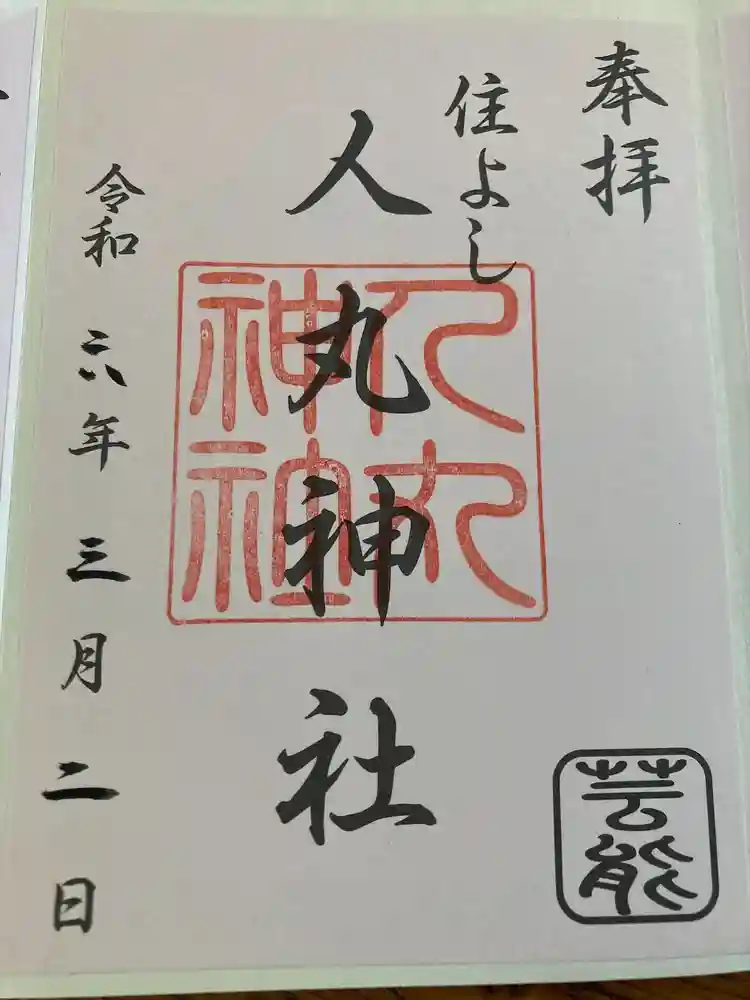 奉拝
住よし
人丸神社
人丸神社
令和六年三月二日
芸能